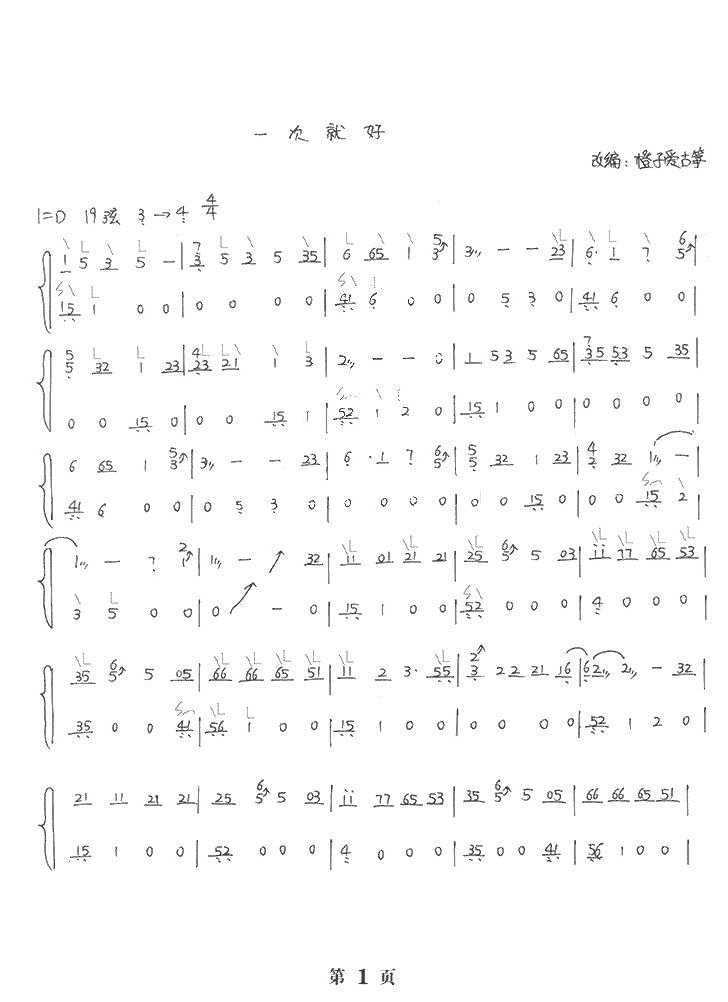 一次就好
改编：橙子爱古筝
1=D 19弦 3→4 4/4
1 5 3 5 — | 3 5 3 5 35 | 6 65 1 3 | 3 — — 23 | 6· 1 7 5 |
15 1 0 0 | 0 0 0 0 | 41 6 0 0 | 0 5 3 0 | 41 6 0 0 |
5 32 1 23 | 23 21 1 3 | 2 — — 0 | 1 53 5 65 | 35 53 5 35 |
0 0 15 0 | 0 0 15 1 | 52 1 2 0 | 15 1 0 0 | 0 0 0 0 |
6 65 1 3 | 3 — — 23 | 6 · 1 7 6 | 5 32 1 23 | 2 32 1 — |
41 6 0 0 | 0 5 3 0 | 0 0 0 0 | 0 0 15 0 | 0 0 15 2 |
1 — 7 1 | 1 — 32 | 11 01 21 21 | 25 5 5 03 | 11 77 65 53 |
3 5 0 0 | 0 — 0 | 15 1 0 0 | 52 0 0 0 | 4 0 0 0 |
35 5 5 05 | 66 66 65 51 | 11 2 3· 55 | 3 2 2 21 16 | 62 2 — 32 |
35 0 0 41 | 56 1 0 0 | 15 1 0 0 | 0 0 0 0 | 52 1 2 0 |
21 11 21 21 | 25 5 5 03 | 11 77 65 53 | 35 5 5 05 | 66 66 65 51 |
15 1 0 0 | 52 0 0 0 | 4 0 0 0 | 35 0 0 41 | 56 1 0 0 |
第 1 页